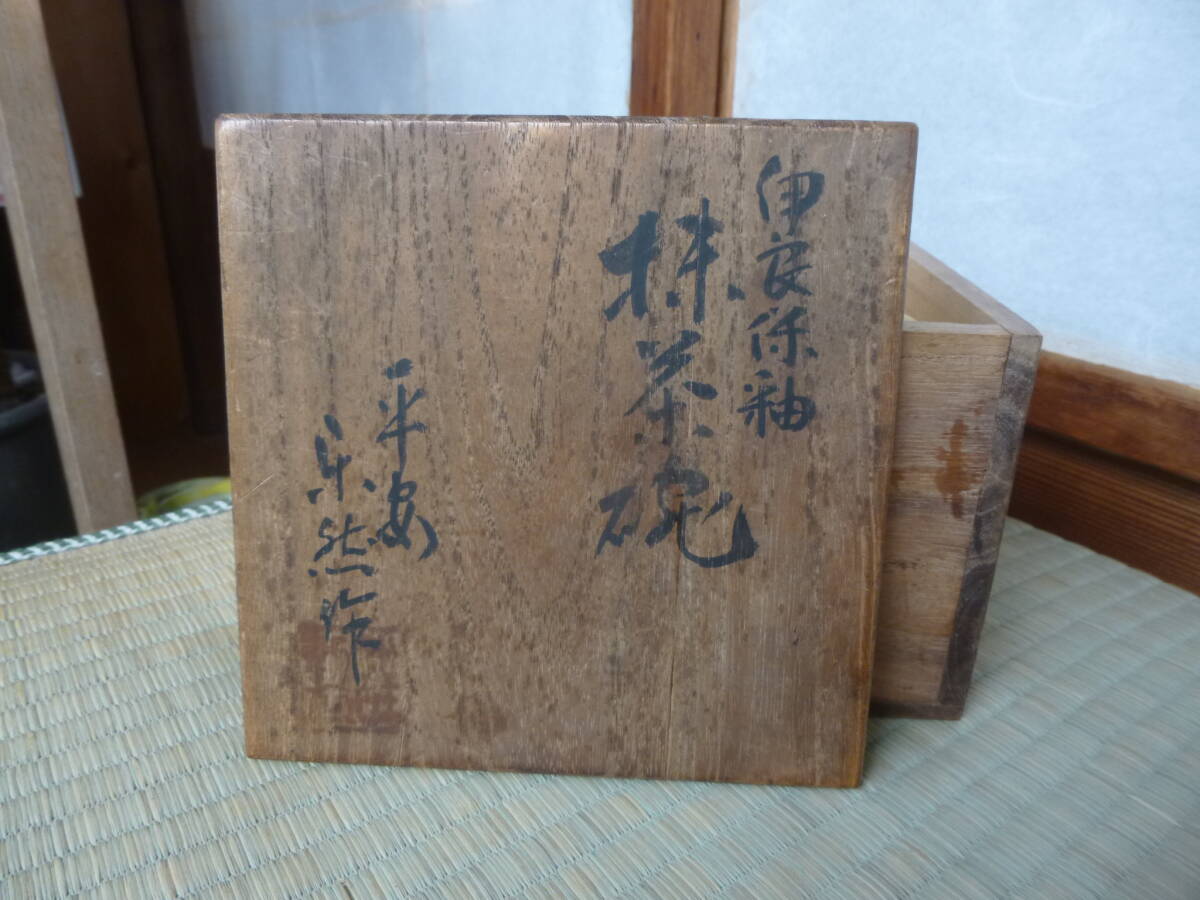 伊良保釉
抹茶碗
平安
楽然作